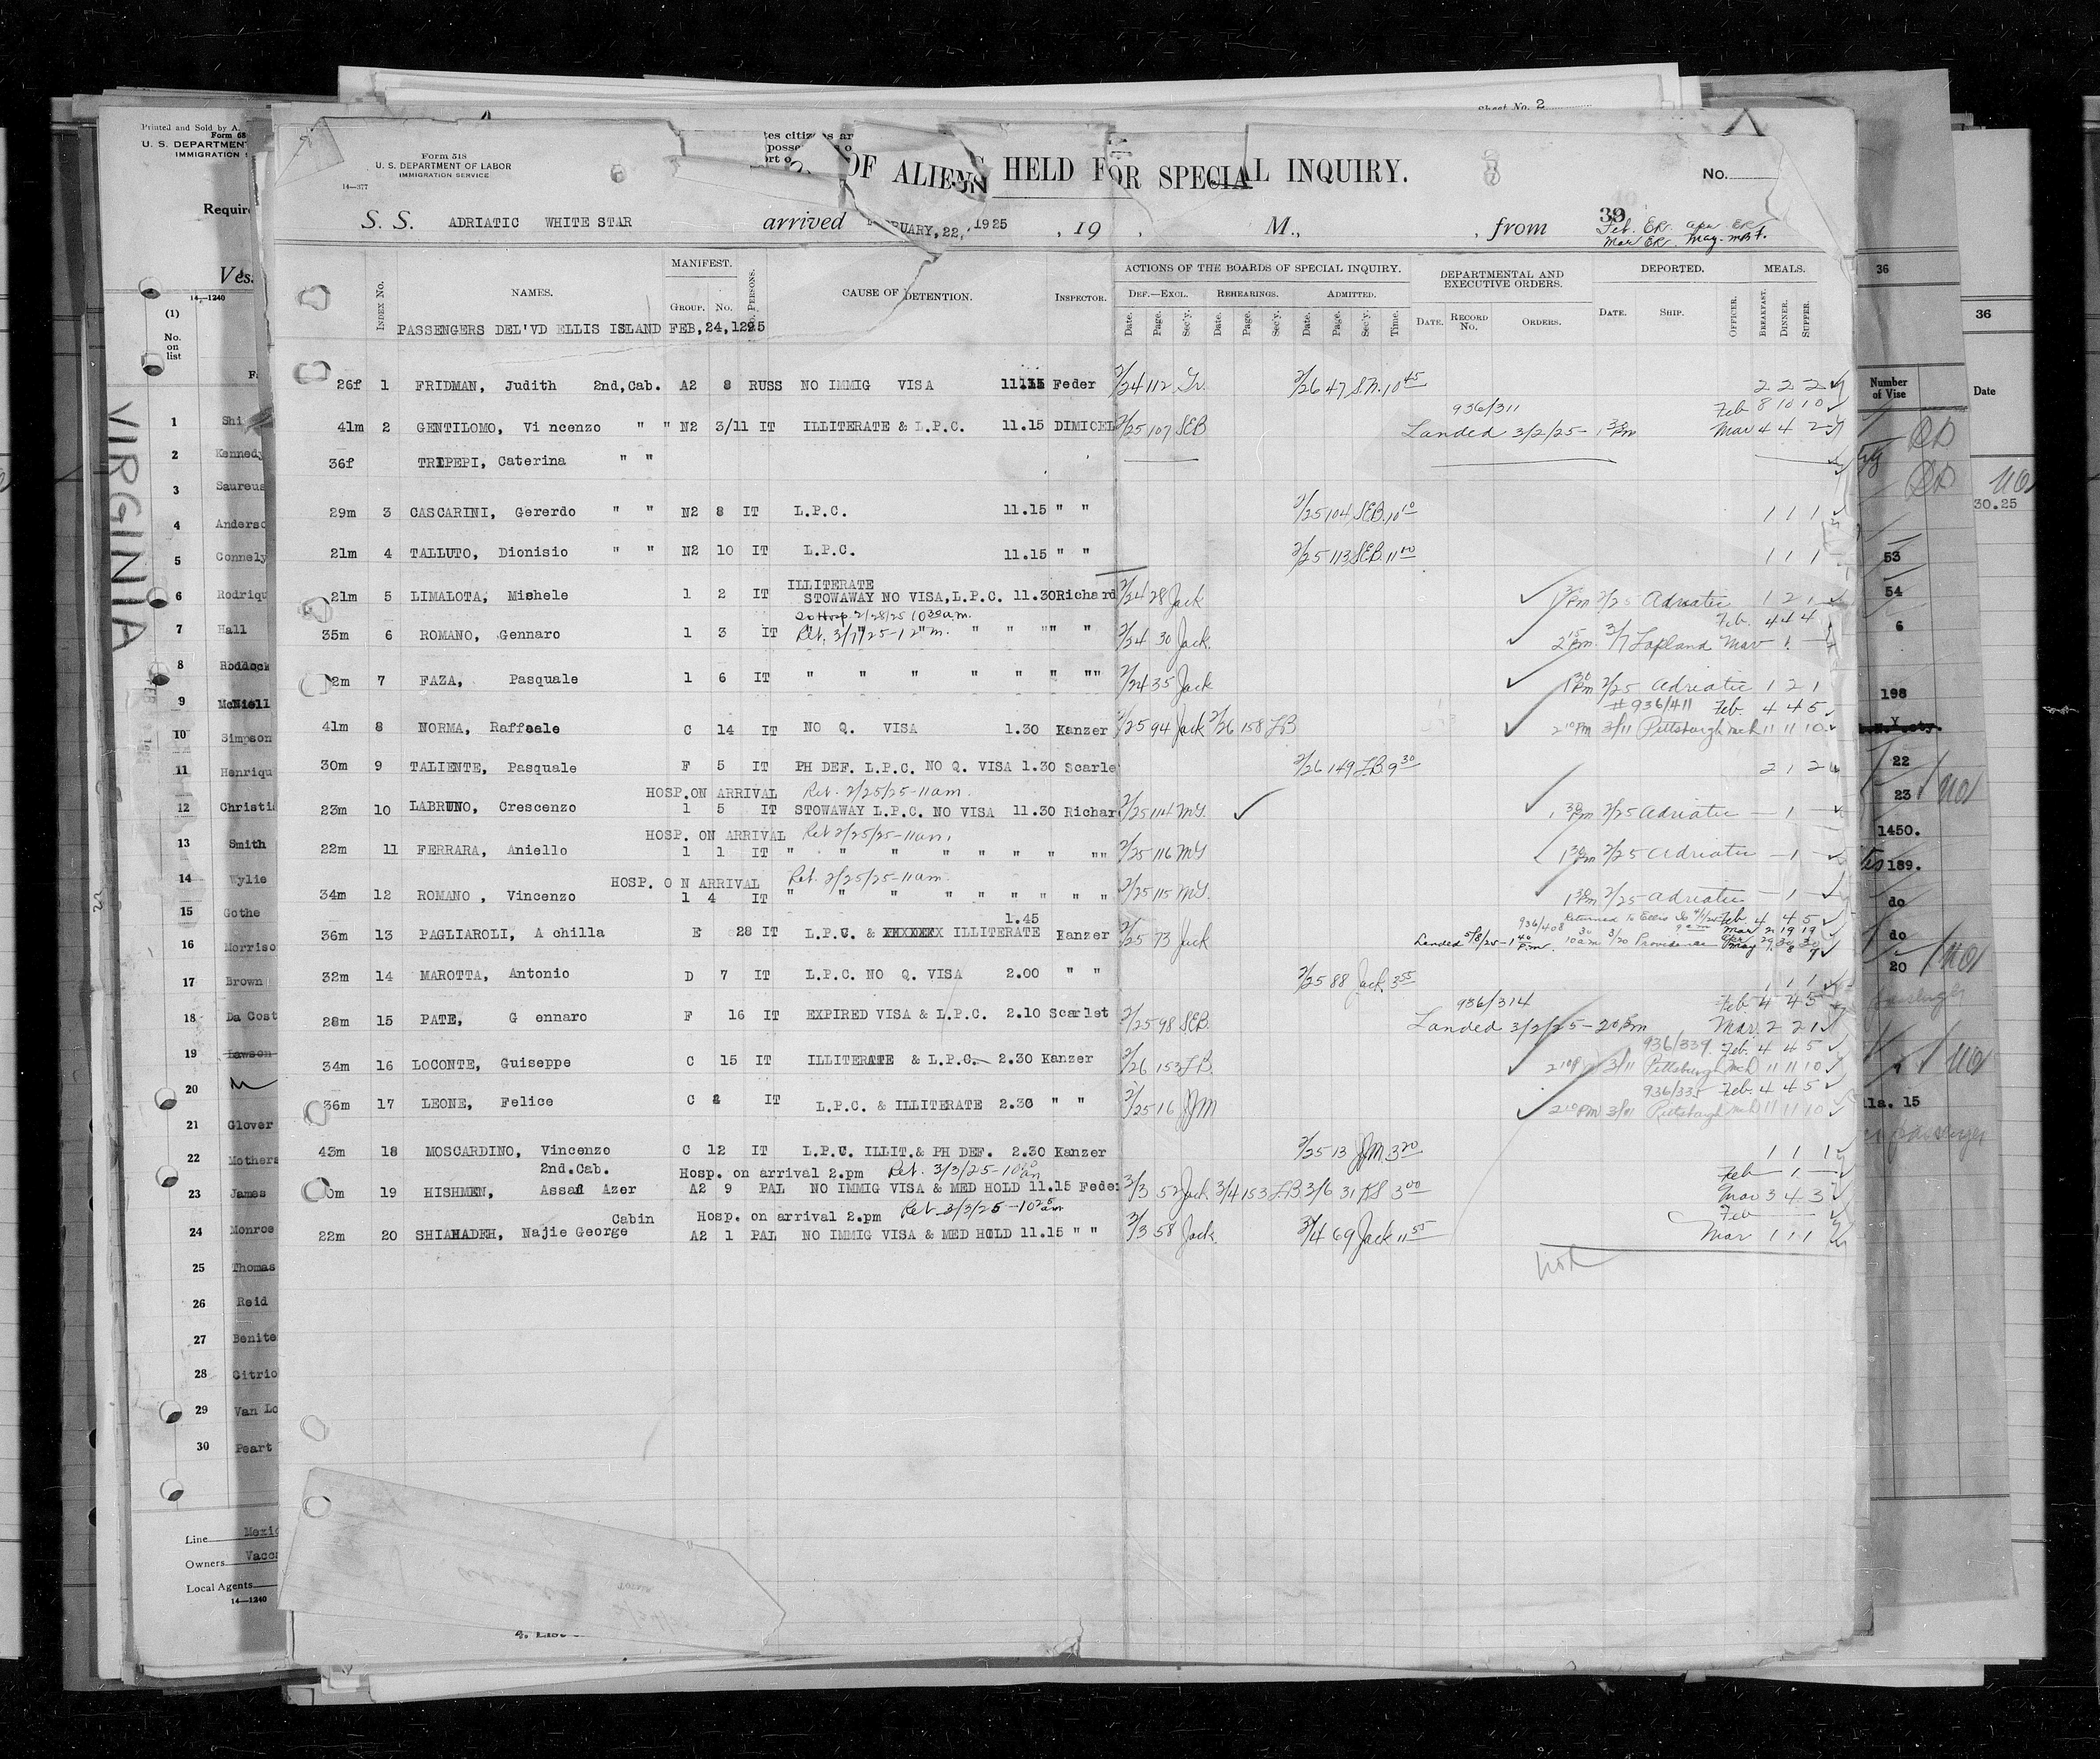 Sheet No. 2
Printed and Sold by A.
Form 68
U. S. DEPARTMENT
IMMIGRATION S
Require
Vess
14—1240
(1)
No.
on
list
VIRGINIA
1 Shi
2 Kennedy
3 Saureus
4 Anderso
5 Connely
6 Rodriqu
7 Hall
8 Roddock
9 McNiell
10 Simpson
11 Henriqu
12 Christia
13 Smith
14 Wylie
15 Gothe
16 Morriso
17 Brown
18 Da Cost
19 Lawson
20
21 Glover
22 Mothers
23 James
24 Monroe
25 Thomas
26 Reid
27 Benite
28 Citrio
29 Van Lo
30 Peart
Line Mexic
Owners Vacca
Local Agents
14—1240
Form 518
U. S. DEPARTMENT OF LABOR
IMMIGRATION SERVICE
14—377
OF ALIENS HELD FOR SPECIAL INQUIRY.
No.
S. S. ADRIATIC WHITE STAR arrived RUARY, 22, 1925 , 19 , M., , from 39
Feb. ER. Apr ER
Mar ER. May.
INDEX No. NAMES. MANIFEST. GROUP. No. No. PERSONS. CAUSE OF DETENTION. INSPECTOR. ACTIONS OF THE BOARDS OF SPECIAL INQUIRY. DEPARTMENTAL AND EXECUTIVE ORDERS. DEPORTED. MEALS.
DEF.—EXCL. REHEARINGS. ADMITTED.
Date. Page. Sec'y. Date. Page. Sec'y. Date. Page. Sec'y. Time. DATE. RECORD No. ORDERS. DATE. SHIP. OFFICER. BREAKFAST. DINNER. SUPPER.
PASSENGERS DEL'VD ELLIS ISLAND FEB,24,1295
26f 1 FRIDMAN, Judith 2nd,Cab. A2 8 RUSS NO IMMIG VISA 11.15 Feder 2/24 112 Gr. 2/26 47 S.N. 10 45 2 2 2
936/311 Feb 8 10 10
41m 2 GENTILOMO, Vi ncenzo " " N2 3/11 IT ILLITERATE & L.P.C. 11.15 DIMICEL 2/25 107 SEB Landed 3/2/25- 1 30 Pm Mar 4 4 2
36f TRIPEPI, Caterina " "
29m 3 CASCARINI, Gererdo " " N2 8 IT L.P.C. 11.15 " " 2/25 104 SEB. 10 10 1 1 1
21m 4 TALLUTO, Dionisio " " N2 10 IT L.P.C. 11.15 " " 2/25 113 SEB. 11 00 1 1 1
ILLITERATE
21m 5 LIMALOTA, Mishele 1 2 IT STOWAWAY NO VISA,L.P.C. 11.30 Richard 2/24 28 Jack 1 30 Pm 2/25 Adriatic 1 2 1
To Hosp. 2/28/25 10 30 a.m. Feb. 4 4 4
35m 6 ROMANO, Gennaro 1 3 IT Ret. 3/7/25-12 m. " " "" " " 2/24 30 Jack. 2 15 Pm. 3/7 Lapland Mar 1
2m 7 FAZA, Pasquale 1 6 IT " " " " " " "" 2/24 35 Jack 1 30 Pm 2/25 Adriatic 1 2 1
#936/411 Feb. 4 4 5
41m 8 NORMA, Raffaele C 14 IT NO Q. VISA 1.30 Kanzer 2/25 94 Jack 2/26 158 L.B 2 10 Pm 3/11 Pittsburgh Mch 11 11 10
30m 9 TALIENTE, Pasquale F 5 IT PH DEF. L.P.C. NO Q. VISA 1.30 Scarle 2/26 149 L.B. 9 30 2 1 2
HOSP.ON ARRIVAL Ret. 2/25/25-11am.
23m 10 LABRUNO, Crescenzo 1 5 IT STOWAWAY L.P.C. NO VISA 11.30 Richar 2/25 114 M.Y. 1 30 Pm 2/25 Adriatic — 1 —
HOSP. ON ARRIVAL Ret 2/25/25-11am.
22m 11 FERRARA, Aniello 1 1 IT " " " " " " " "" 2/25 116 M.Y 1 30 Pm 2/25 Adriatic — 1 —
HOSP. O N ARRIVAL Ret. 2/25/25-11am.
34m 12 ROMANO , Vincenzo 1 4 IT " " " " " " " " " 2/25 115 M.Y. 1 30 Pm 2/25 Adriatic — 1 —
936/408 Returned to Ellis Is 4/1/25 Feb. 4 4 5
1.45 9 am Mar 21 19 19
36m 13 PAGLIAROLI, A chilla E 28 IT L.P.C. & XXXXXXX ILLITERATE Kanzer 2/25 73 Jack Landed 5/8/25-1 40 P.m. 10 30 am 3/20 Providence Apr 29 30 30
May 7 8 7
32m 14 MAROTTA, Antonio D 7 IT L.P.C. NO Q. VISA 2.00 " " 2/25 88 Jack. 3 55 1 1 1
936/314 Feb. 4 4 5
28m 15 PATE, G ennaro F 16 IT EXPIRED VISA & L.P.C. 2.10 Scarlet 2/25 98 SEB. Landed 3/2/25 - 2 Pm Mar. 2 2 1
936/339. Feb. 4 4 5
34m 16 LOCONTE, Guiseppe C 15 IT ILLITERATE & L.P.C. 2.30 Kanzer 2/26 153 L.B. 2 10 P 3/11 Pittsburgh Mch 11 11 10
936/335 Feb. 4 4 5
36m 17 LEONE, Felice C 8 IT L.P.C. & ILLITERATE 2.30 " " 2/25 16 JJM 2 10 Pm 3/11 Pittsburgh Mch 11 11 10
43m 18 MOSCARDINO, Vincenzo C 12 IT L.P.C. ILLIT.& PH DEF. 2.30 Kanzer 2/25 13 JJM. 3 20 1 1 1
2nd.Cab. Hosp. on arrival 2.pm Ret. 3/3/25-10 20 am Feb — 1 —
0m 19 HISHMEN, Assad Azer A2 9 PAL NO IMMIG VISA & MED HOLD 11.15 Feder 3/3 52 Jack 3/4 153 L.B. 3/6 31 KS 3 00 Mar 3 4 3
Cabin Hosp. on arrival 2.pm Ret 3/3/25-10 25 am Feb
22m 20 SHIAHADEH, Najie George A2 1 PAL NO IMMIG VISA & MED HOLD 11.15 " " 3/3 58 Jack. 3/4 69 Jack 11 55 Mar 1 1 1
36
36
Number
of Vise
Date
30.25
53
54
6
198
22
23
1450.
189.
do
do
20
lla. 15
passenger